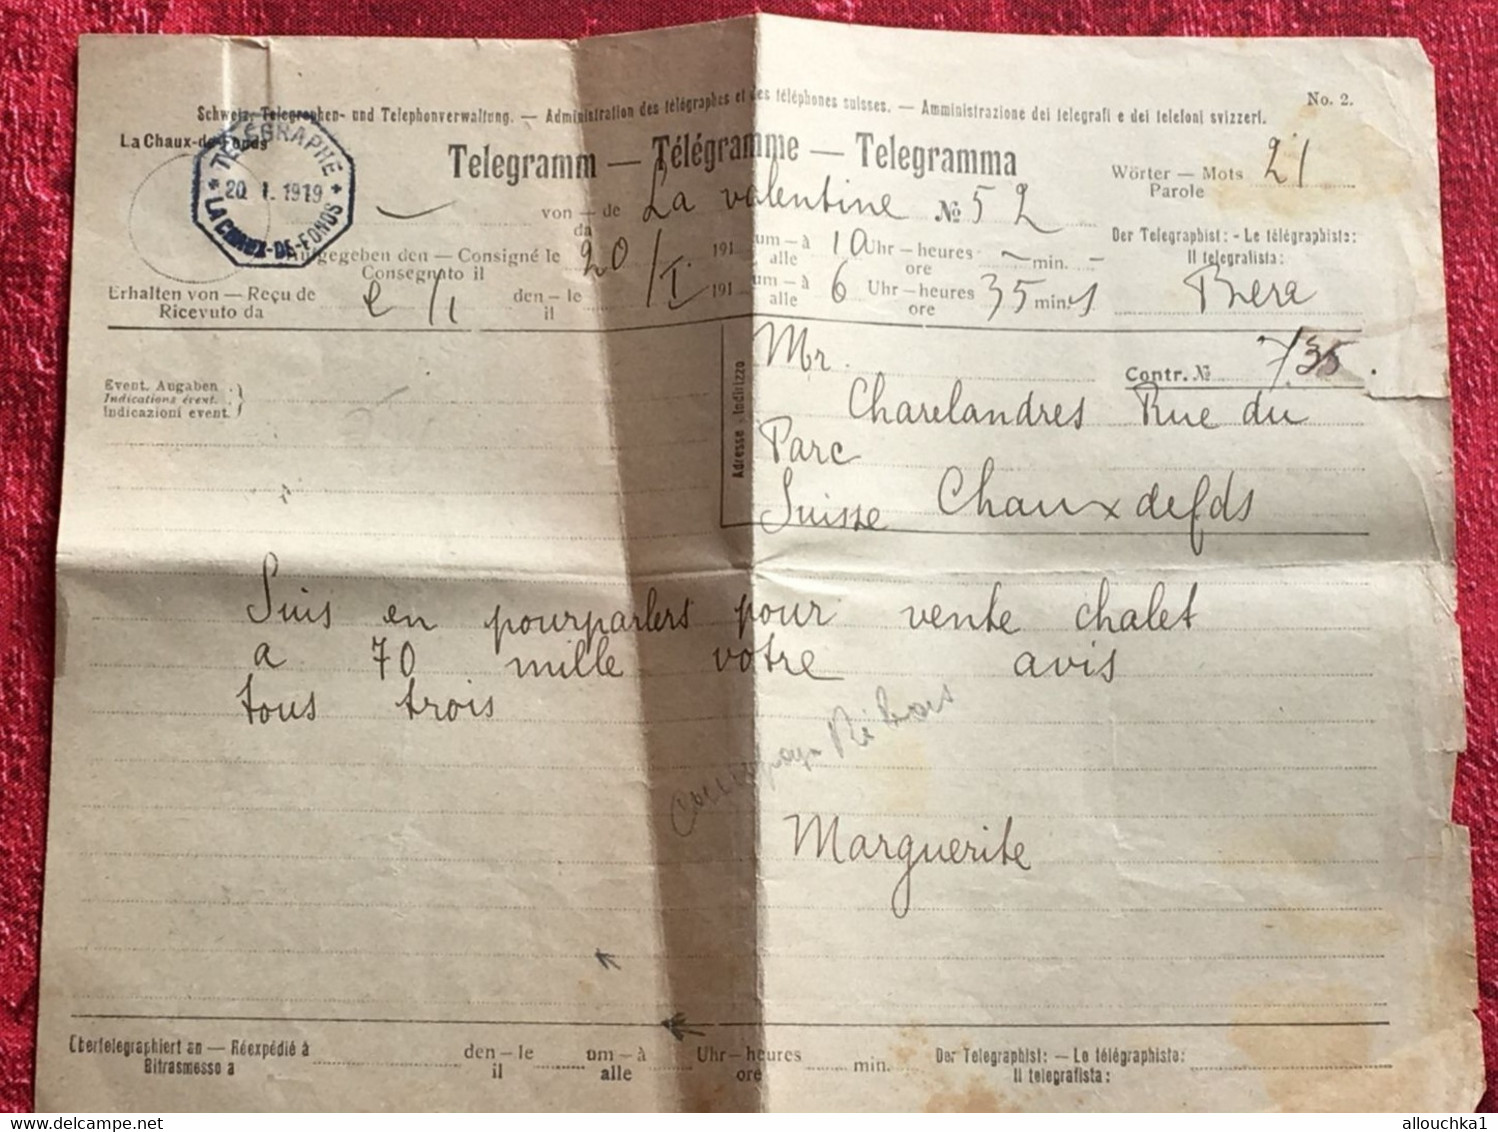 No. 2.
Schweiz. Telegraphen- und Telephonverwaltung. — Administration des télégraphes et des téléphones suisses. — Amministrazione dei telegrafi e dei telefoni svizzeri.
La Chaux-de-Fonds
TÉLÉGRAPHE
20. I. 1919
LA CHAUX-DE-FONDS
Telegramm — Télégramme — Telegramma
Wörter — Mots 21
Parole
von — de La valentine № 52
da
Der Telegraphist: - Le télégraphiste:
Il telegrafista:
Aufgegeben den — Consigné le 20/I 191 um — à 10 Uhr — heures — min. —
Consegnato il alle ore
Erhalten von — Reçu de den — le /I 191 um — à 6 Uhr — heures 35 min. s
Ricevuto da il alle ore
Event. Angaben
Indications évent.
Indicazioni event.
Adresse - Indirizzo
Mr.
Contr. № 735
Charelandres Rue du
Parc
Suisse Chaux defds
Suis en pourparlers pour vente chalet
a 70 mille votre avis
tous trois
Marguerite
Übertelegraphiert an — Réexpédié à den — le um — à Uhr — heures min. Der Telegraphist: — Le télégraphiste:
Ritrasmesso a il alle ore Il telegrafista:
delcampe.net
allouchka1